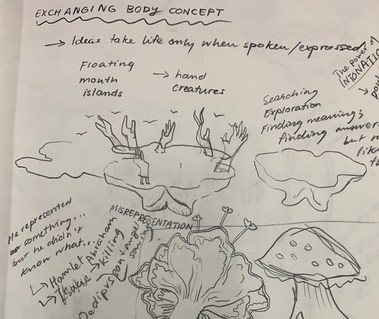 EXCHANGING BODY CONCEPT
→ Ideas take life only when spoken/expressed
Floating
mouth
islands
→ hand
creatures
The power of
Searching
Exploration
Finding meaning;
finding answers
but
He represented
something...
but he didn't
know what...
MISREPRESENTATION
↳ Hamlet
↳ Abraham
killing
Oedipus